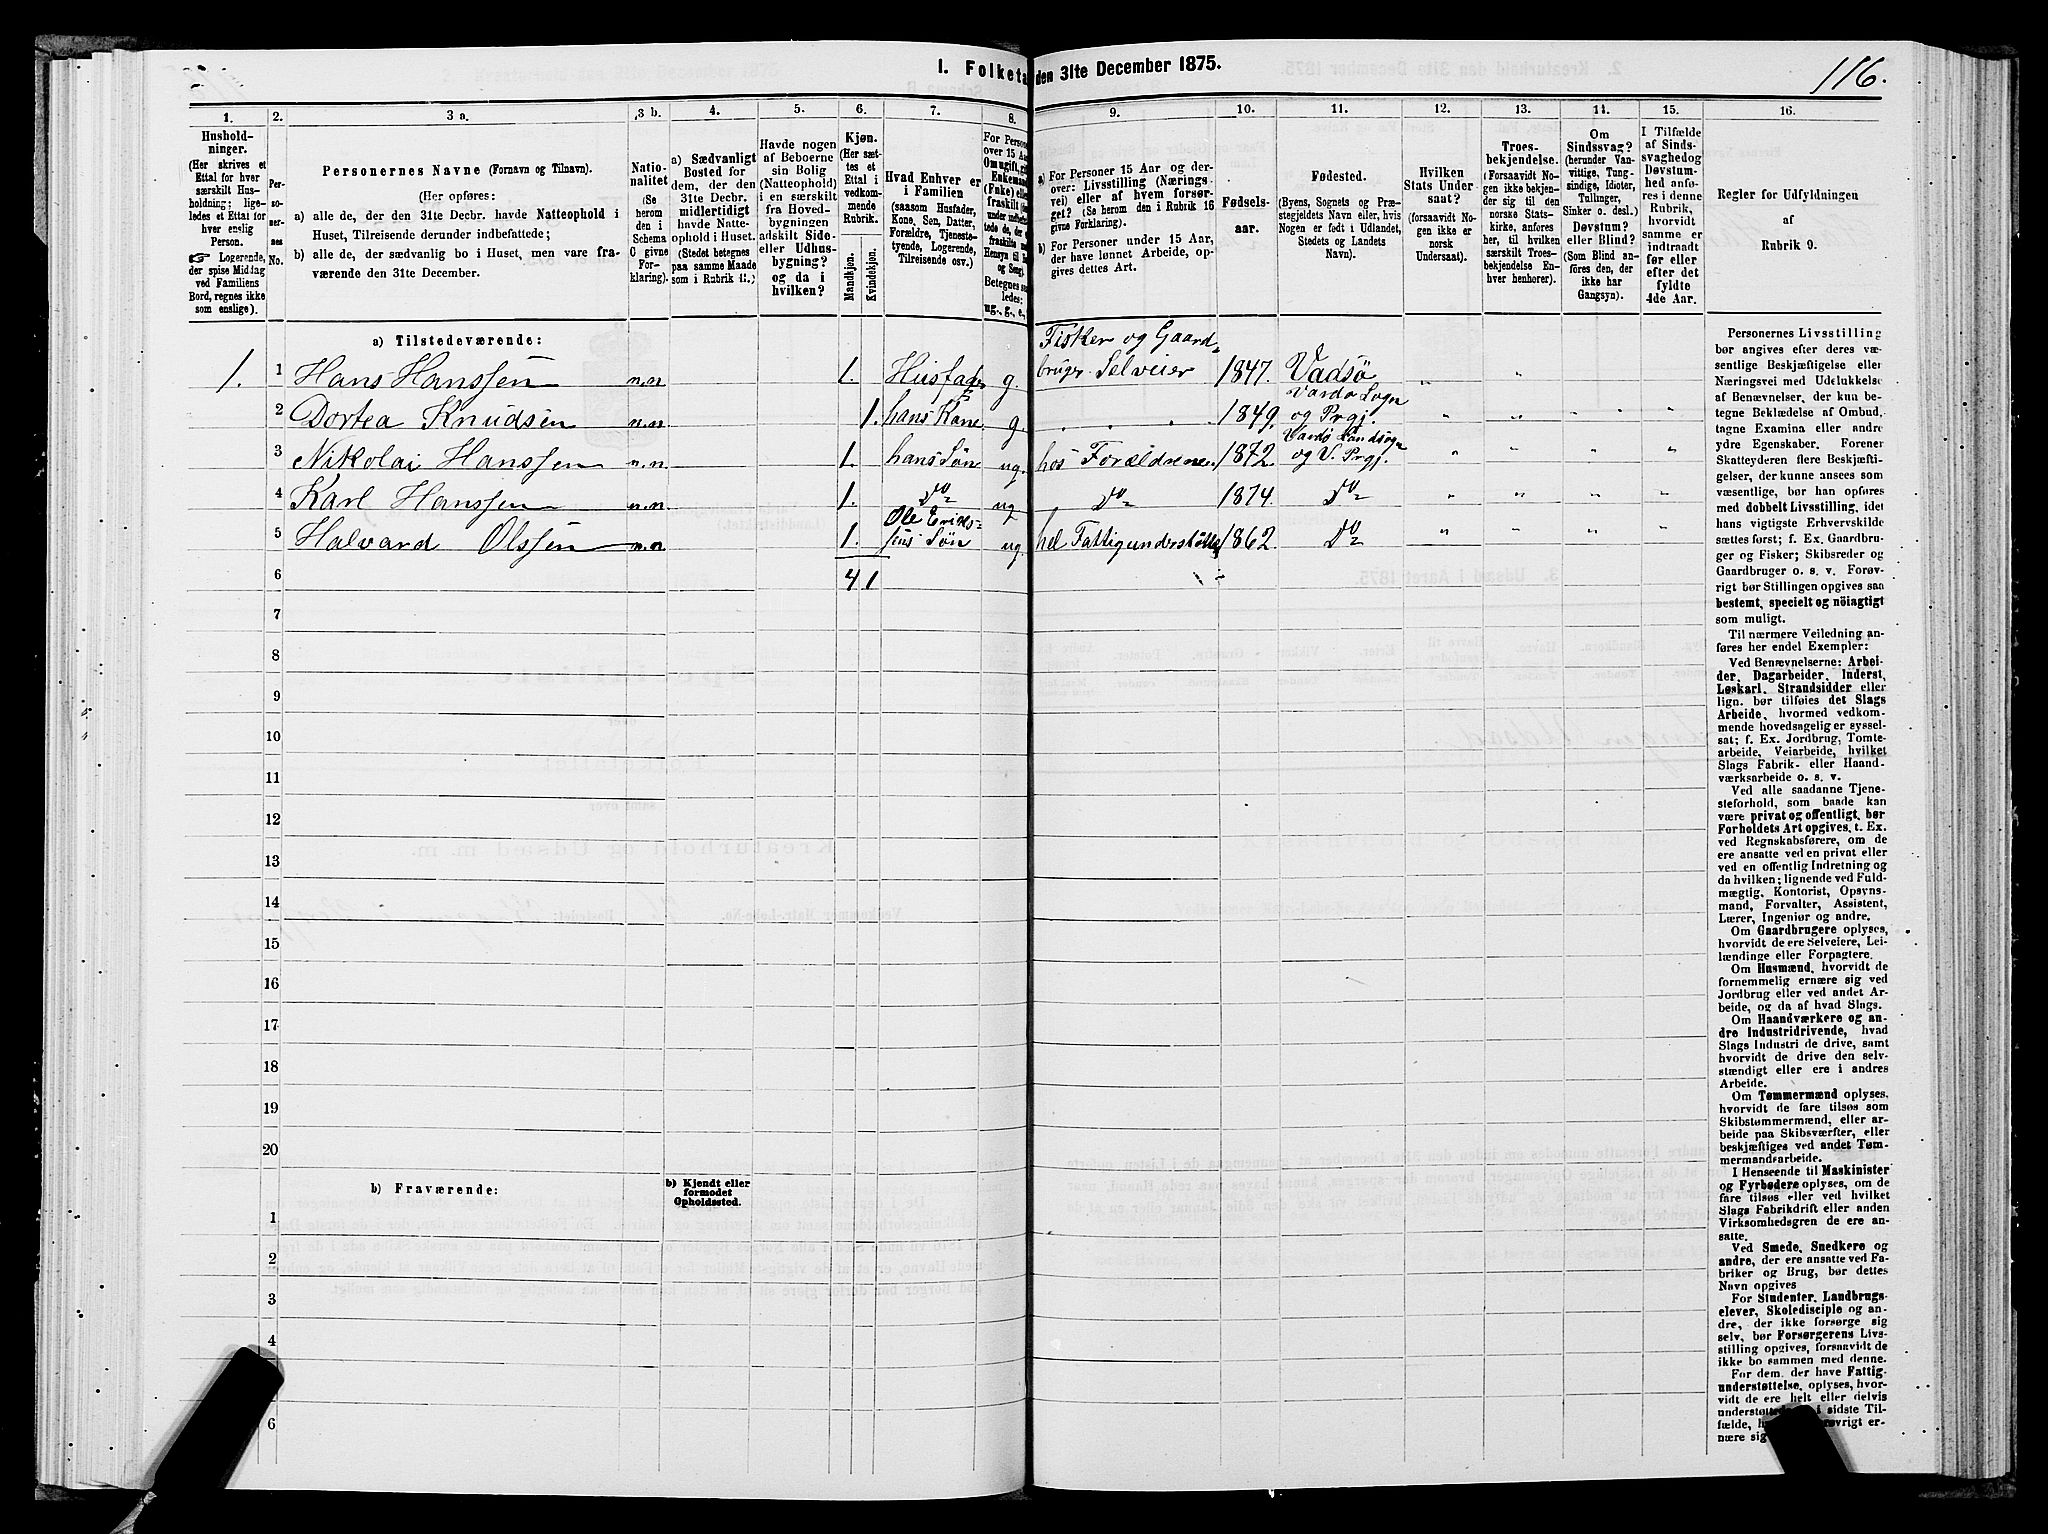 I. Folketa den 31te December 1875.
116.
1. 2. 3 a. 3 b. 4. 5. 6. 7. 8. 9. 10. 11. 12. 13. 14. 15. 16.
Hushold-
ninger.
(Her skrives et
Ettal for hver
særskilt Hus-
holdning; lige-
ledes et Ettal for
hver enslig
Person.
☞ Logerende,
der spise Middag
ved Familiens
Bord, regnes ikke
som enslige).
Per-
so-
ner-
nes
No.
Personernes Navne (Fornavn og Tilnavn).
(Her opføres:
a) alle de, der den 31te Decbr. havde Natteophold i
Huset, Tilreisende derunder indbefattede;
b) alle de, der sædvanlig bo i Huset, men vare fra-
værende den 31te December.
Natio-
nalitet
(Se
herom
den i
Schema
C givne
For-
klaring).
a) Sædvanligt
Bosted for
dem, der den
31te Decbr.
midlertidigt
havde Natte-
ophold i Huset.
(Stedet betegnes
paa samme Maade
som i Rubrik 11.)
Havde nogen
af Beboerne
sin Bolig
(Natteophold)
i en særskilt
fra Hoved-
bygningen
adskilt Side-
eller Udhus-
bygning?
og da i
hvilken?
Kjøn.
(Her sæt-
tes et
Ettal i
vedkom-
mende
Rubrik.
Mandkjøn.
Kvindekjøn.
Hvad Enhver er
i Familien
(saasom Husfader,
Kone, Søn, Datter,
Forældre, Tjeneste-
tyende, Logerende,
Tilreisende osv.)
For Persone
over 15 Aar
Omugift, gift
Enkemand
(Enke) eller
fraskilt
Betegnes saa
ledes:
ug., g., e.,
a) For Personer 15 Aar og der-
over: Livsstilling (Nærings-
vei) eller af hvem forsør-
get? (Se herom den i Rubrik 16
givne Forklaring).
b) For Personer under 15 Aar,
der have lønnet Arbeide, op-
gives dettes Art.
Fødsels-
aar.
Fødested.
(Byens, Sognets og Præ-
stegjeldets Navn eller, hvis
Nogen er født i Udlandet,
Stedets og Landets
Navn).
Hvilken
Stats Under-
saat?
(forsaavidt No-
gen ikke er
norsk
Undersaat).
Troes-
bekjendelse.
(Forsaavidt No-
gen ikke bekjen-
der sig til den
norske Stats-
kirke, anføres
her, til hvilken
særskilt Troes-
bekjendelse En-
hver henhører).
Om
Sindssvag?
(herunder Van-
vittige, Tung-
sindige, Idioter,
Tullinger,
Sinker o. desl.)
Døvstum?
eller Blind?
(Som Blind an-
føres den, der
ikke har
Gangsyn).
I Tilfælde
af Sinds-
svaghed og
Døvstum-
hed anfø-
res i denne
Rubrik,
hvorvidt
samme er
indtraadt
før eller
efter det
fyldte
4de Aar.
Regler for Udfyldningen
af
Rubrik 9.
a) Tilstedeværende:
Fisker og Gaard-
1. 1 Hans Hanssen n.n 1. Husfader g. bruger Selveier 1847. Vadsø " "
Vardø Sogn
2 Dortea Knudsen n.n 1. hans Kone g. " " " 1849. og Prgj. " " " " "
Vardø Landsogn
3 Nikolai Hanssen n.n. 1. hans Søn ug. hos Forældrene. 1872. og V. Prgj. " " " "
4 Karl Hanssen n.n. 1. Do ug Do 1874. Do " " " "
Ole Erik-
5 Halvard Olssen n.n 1. sens Søn ug. hel Fattigunderstøttet 1862. Do " " " "
6 4 1
7
8
9
10
11
12
13
14
15
16
17
18
19
20
b) Fraværende:
b) Kjendt eller
formodet
Opholdssted.
1
2
3
4
6
Personernes Livsstilling
bør angives efter deres væ-
sentlige Beskjæftigelse eller
Næringsvei med Udelukkelse
af Benævnelser, der kun be-
tegne Beklædelse af Ombud,
tagne Examina eller andre
ydre Egenskaber. Forener
Skatteyderen flere Beskjæfti-
gelser, der kunne ansees som
væsentlige, bør han opføres
med dobbelt Livsstilling, idet
hans vigtigste Erhvervskilde
sættes først; f. Ex. Gaardbru-
ger og Fisker; Skibsreder og
Gaardbruger o. s. v. Forøv-
rigt bør Stillingen opgives saa
bestemt, specielt og nöiagtigt
som muligt.
Til nærmere Veiledning an-
føres her endel Exempler:
Ved Benævnelserne: Arbei-
der, Dagarbeider, Inderst,
Løskarl, Strandsidder eller
lign. bør tilføies det Slags
Arbeide, hvormed vedkom-
mende hovedsagelig er syssel-
sat; f. Ex. Jordbrug, Tomte-
arbeide, Veiarbeide, hvilket
Slags Fabrik- eller Haand-
værksarbeide o. s. v.
Ved alle saadanne Tjene-
steforhold, som baade kan
være privat og offentligt, bør
Forholdets Art opgives, t. Ex.
ved Regnskabsførere, om de
ere ansatte ved en privat eller
ved en offentlig Indretning og
da hvilken; lignende ved Fuld-
mægtig, Kontorist, Opsyns-
mand, Forvalter, Assistent,
Lærer, Ingeniør og andre.
Om Gaardbrugere oplyses,
hvorvidt de ere Selveiere, Lei-
lændinge eller Forpagtere.
Om Husmænd, hvorvidt de
fornemmelig ernære sig ved
Jordbrug eller ved andet Ar-
beide, og da af hvad Slags.
Om Haandværkere og an-
dre Industridrivende, hvad
Slags Industri de drive, samt
hvorvidt de drive den selv-
stændigt eller ere i andres
Arbeide.
Om Tømmermænd oplyses,
hvorvidt de fare tilsøs som
Skibstømmermænd, eller ar-
beide paa Skibsværfter, eller
beskjæftiges ved andet Tøm-
mermandsarbeide.
I Henseende til Maskinister
og Fyrbødere oplyses, om de
fare tilsøs eller ved hvilket
Slags Fabrikdrift eller anden
Virksomhedsgren de ere an-
satte.
Ved Smede, Snedkere og
andre, der ere ansatte ved Fa-
briker og Brug, bør dettes
Navn opgives
For Studenter, Landbrugs-
elever, Skoledisciple og an-
dre, der ikke forsørge sig
selv, bør Forsørgerens Livs-
stilling opgives, forsaavidt de
ikke bo sammen med denne.
For dem, der have Fattig-
understøttelse, oplyses, hvor-
vidt de ere helt eller delvis
understøtte i sidste Til-
fælde, h øvrigt er-
nære sig